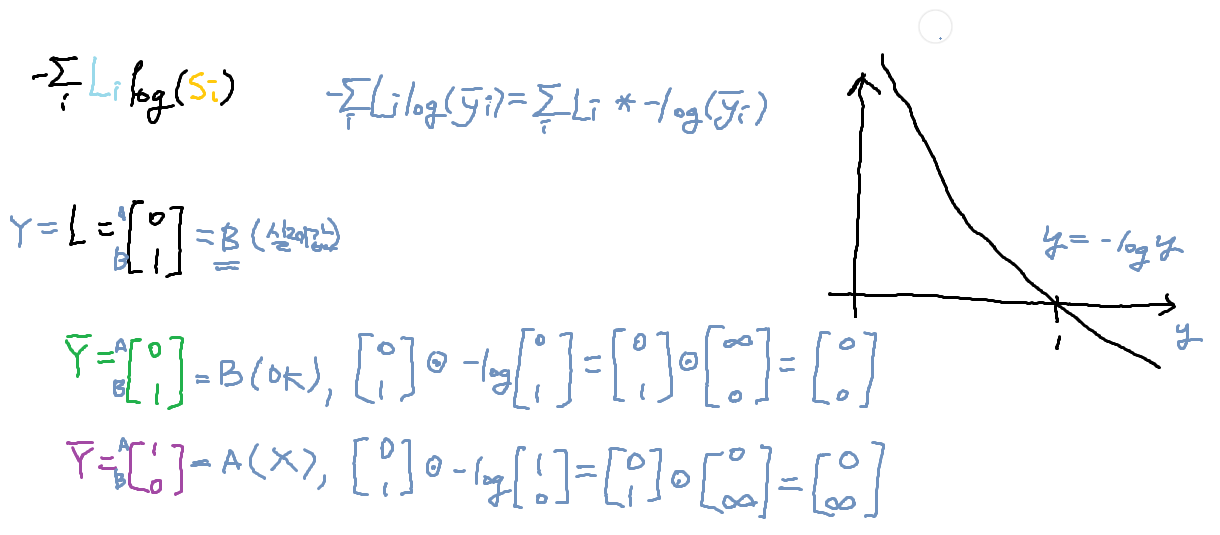 -Σᵢ Lᵢ log(Sᵢ)
-Σᵢ Lᵢ log(ȳᵢ) = Σᵢ Lᵢ * -log(ȳᵢ)
Y = L = A B [0 1] = B
y = -log y
1
y
Ȳ = A B [0 1] = B (OK), [0 1] ⊙ -log [0 1] = [0 1] ⊙ [∞ 0] = [0 0]
Ȳ = A B [1 0] = A (X), [0 1] ⊙ -log [1 0] = [0 1] ⊙ [0 ∞] = [0 ∞]